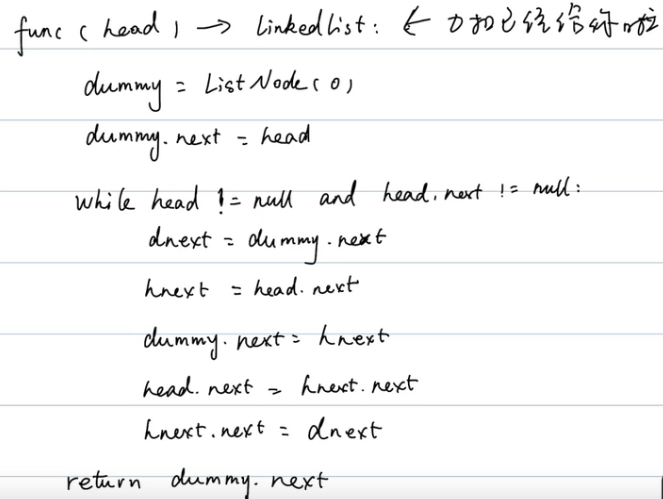 func(head) → LinkedList: ← 力扣已经给好啦
dummy = ListNode(0)
dummy.next = head
while head != null and head.next != null:
dnext = dummy.next
hnext = head.next
dummy.next = hnext
head.next = hnext.next
hnext.next = dnext
return dummy.next